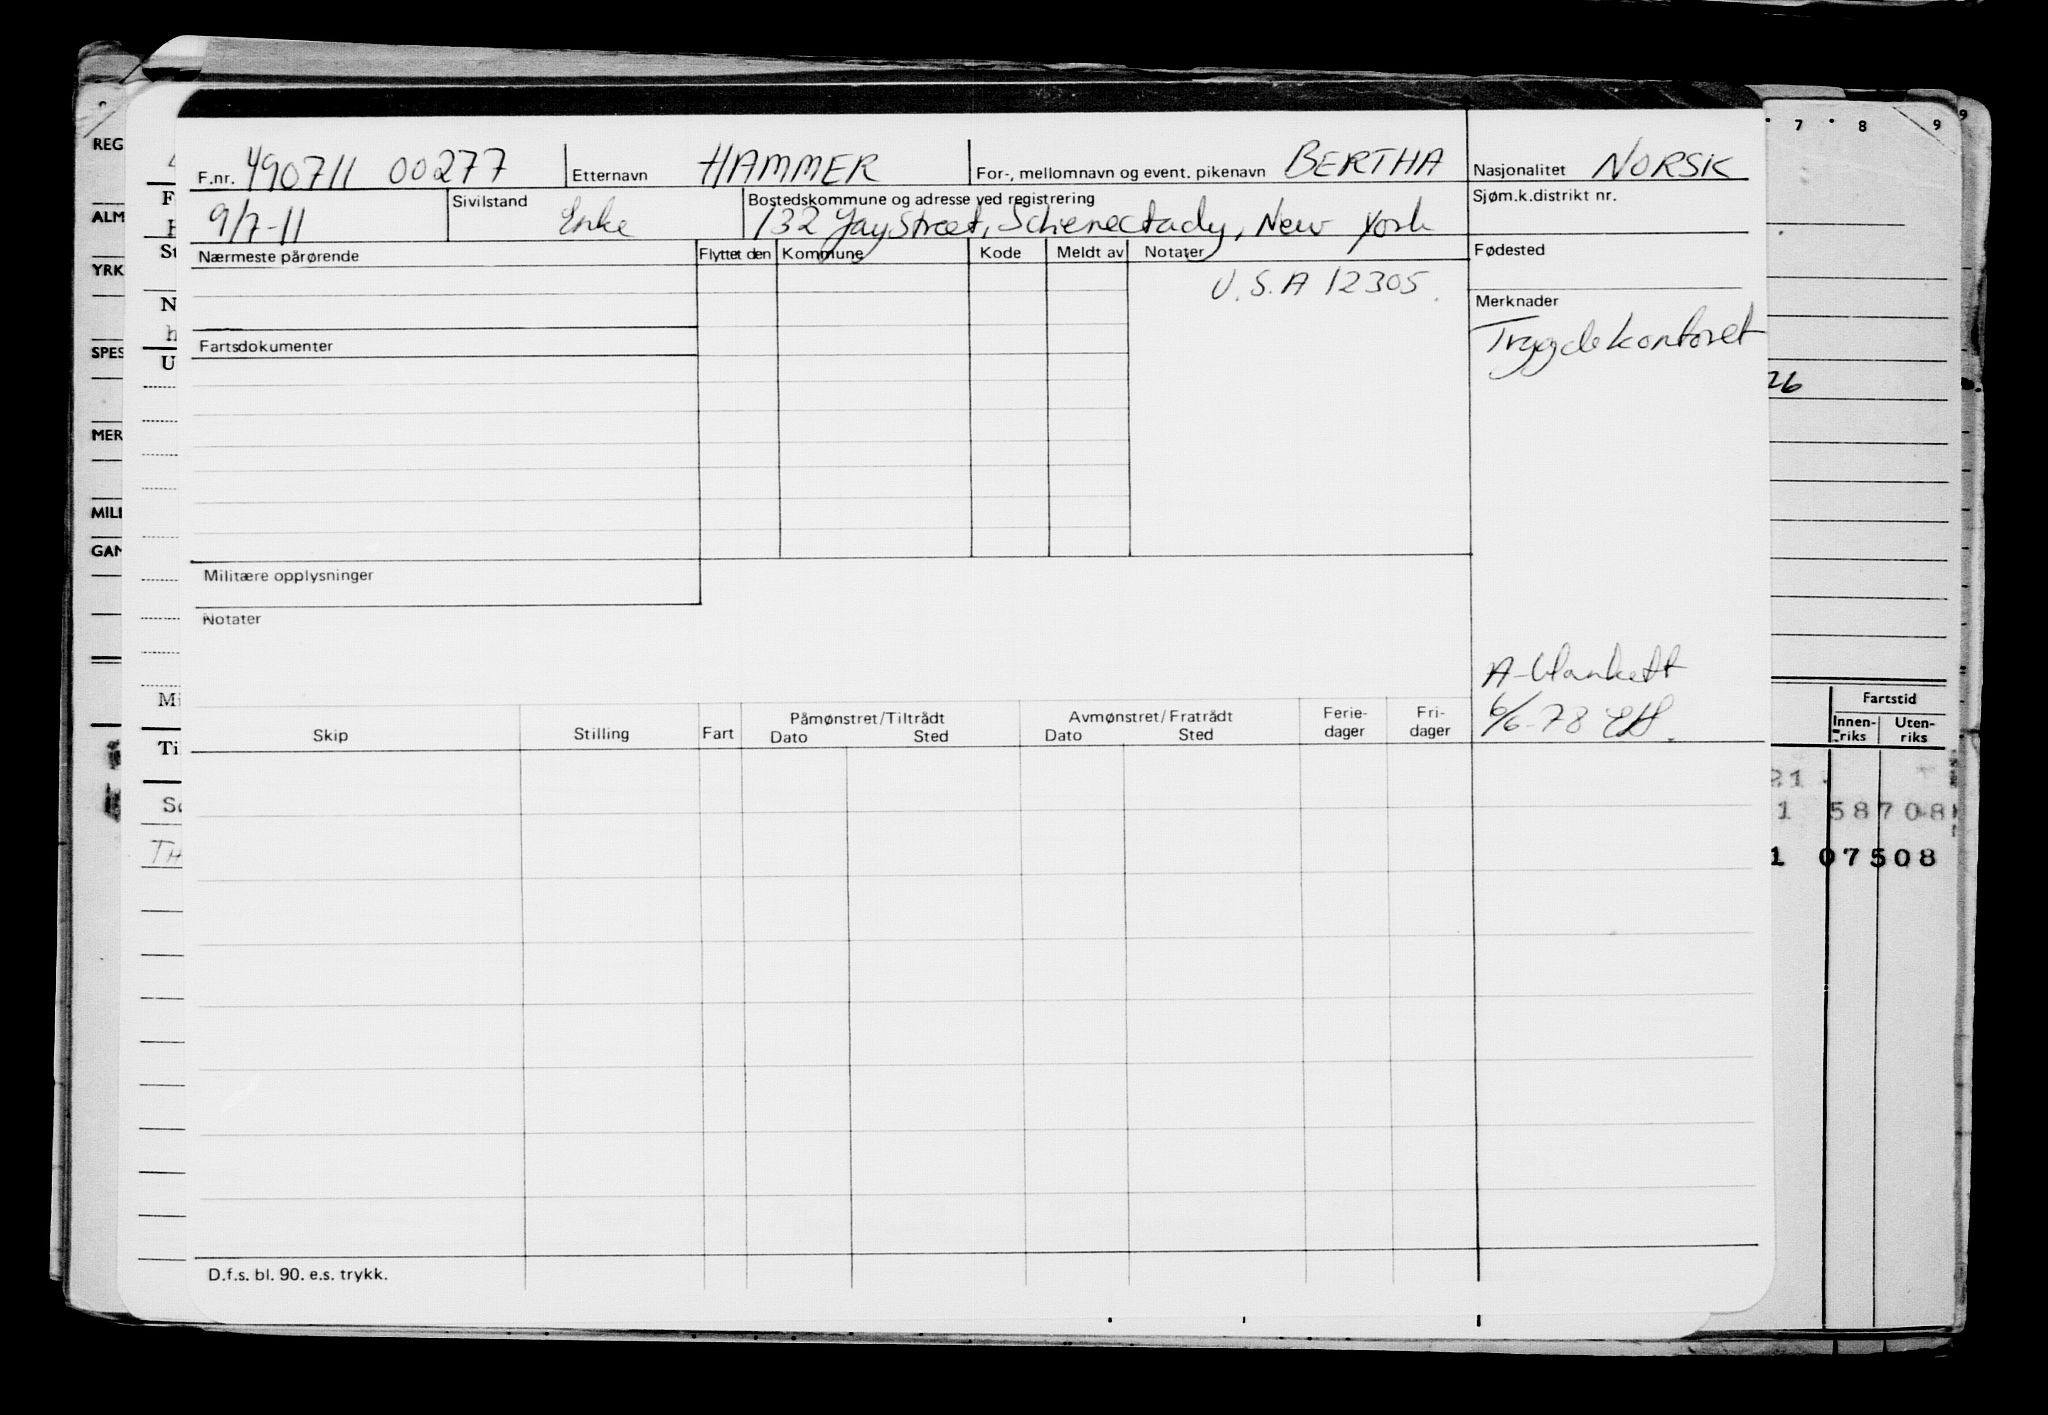 F.nr. 490711 00277 Etternavn HAMMER For-, mellomnavn og event. pikenavn BERTHA Nasjonalitet NORSK
9/7-11 Sivilstand Enke Bostedskommune og adresse ved registrering 132 Jay Street, Schenectady, New York Sjøm.k.distrikt nr.
Nærmeste pårørende Flyttet den Kommune Kode Meldt av Notater Fødested
U.S.A 12305.
Merknader
Trygdekontoret
Fartsdokumenter
Militære opplysninger
Notater
A-blankett
6/6-78 EH.
Skip Stilling Fart Påmønstret/Tiltrådt Dato Sted Avmønstret/Fratrådt Dato Sted Ferie-dager Fri-dager
D.f.s. bl. 90. e.s. trykk.
7 8 9 9
REG
ALM
YRK
SPES
MER
MILI
GAN
St
N
U
Mi
Ti
TH
26
Fartstid
Innen-riks Uten-riks
21
1 58708
1 07508